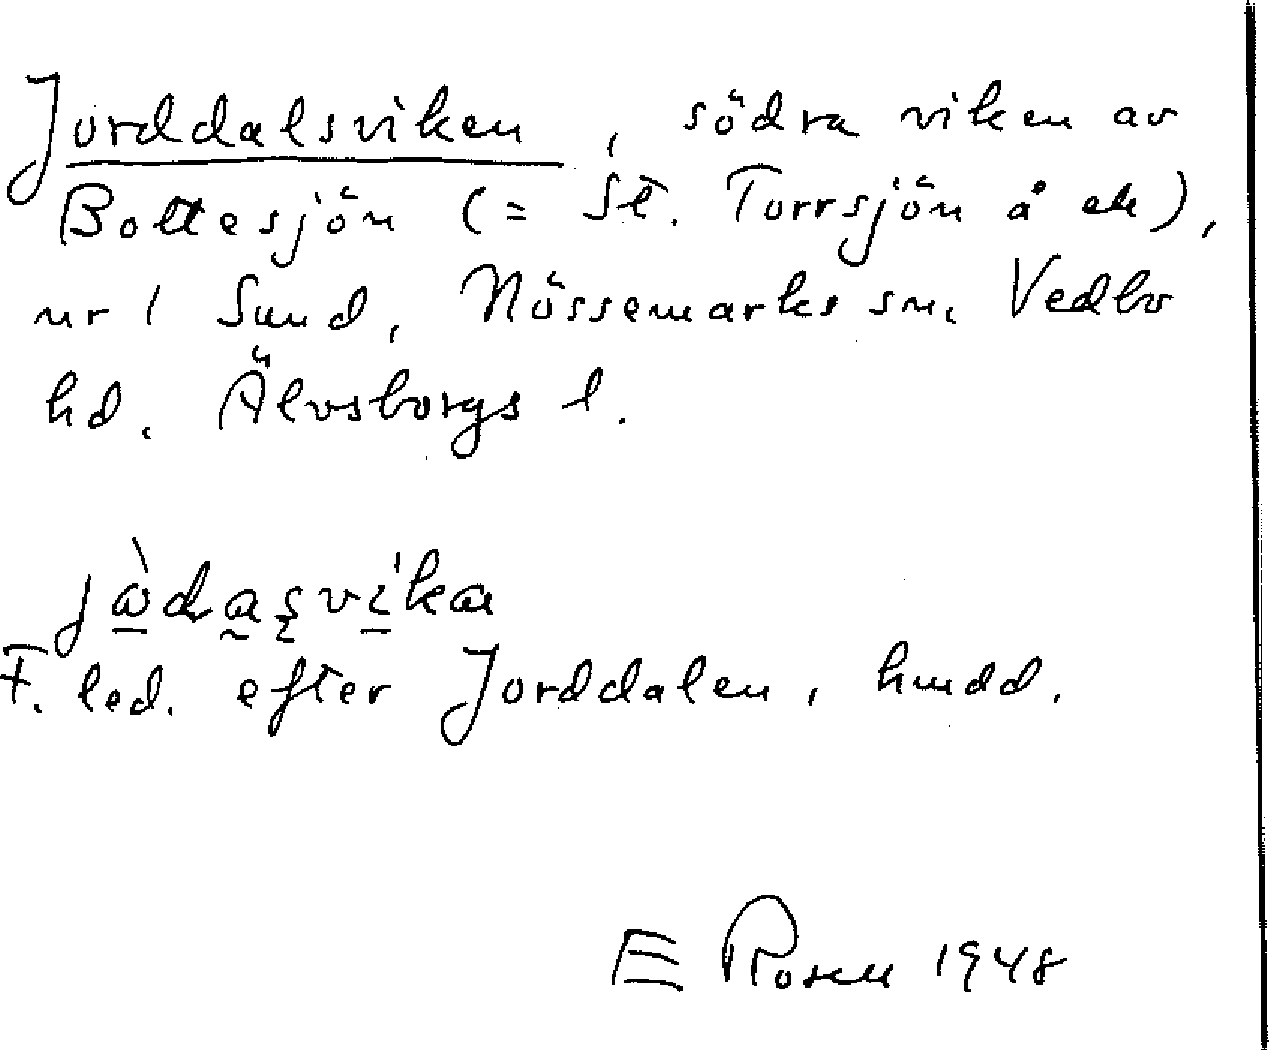 Jorddalsviken, södra viken av
Bottesjön (= St. Torrsjön å ek),
nr 1 Sund, Nössemarks sn. Vedbo
hd. Älvsborgs l.
F. led. efter Jorddalen, hmdd.
E Rosell 1948